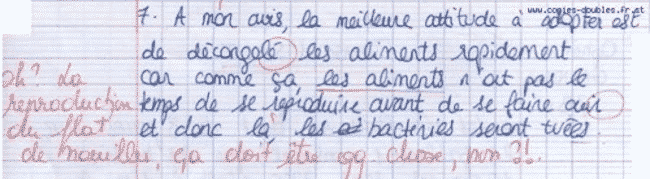 www.copies-doubles.fr.st
7. A mon avis, la meilleure attitude à adopter est
de décongelé les aliments rapidement
car comme ça les aliments n'ont pas le
temps de se reproduire avant de se faire cuir
et donc là, les bactéries seront tuées.
oh? La
reproduction
du flat
de nouilles, ça doit être qq. chose, non ?!.